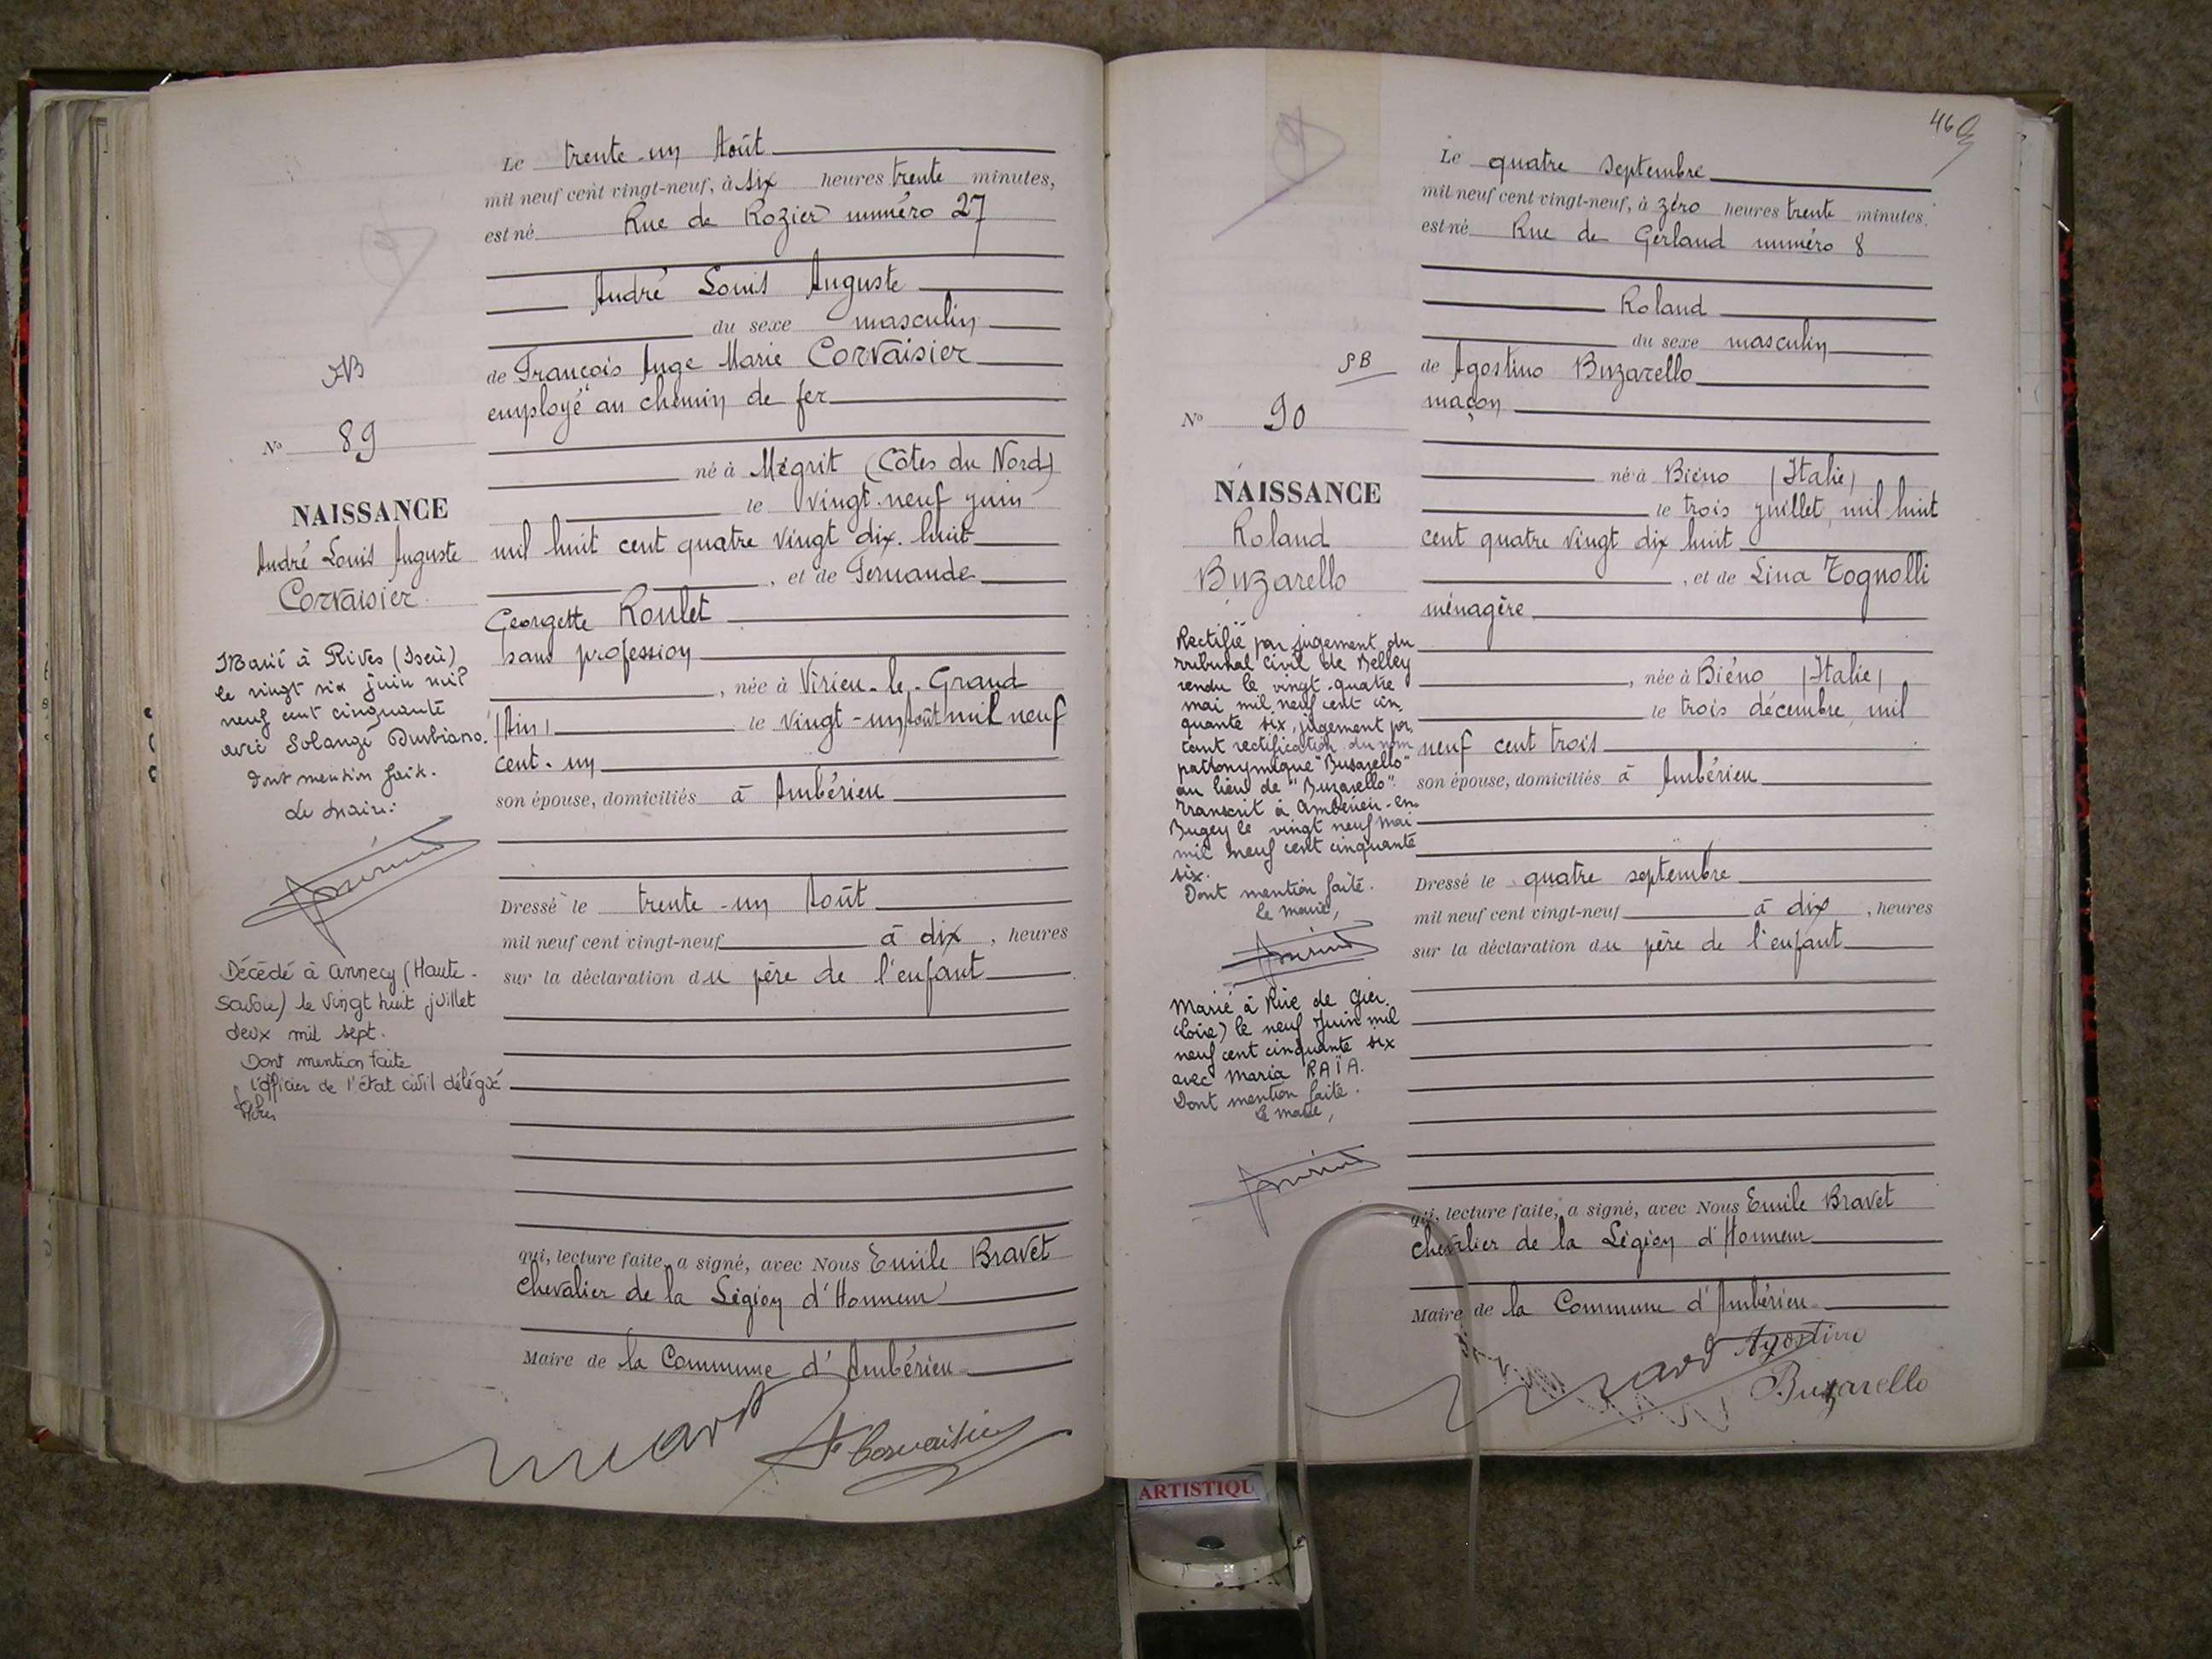 Le trente-un Août
mil neuf cent vingt-neuf, à six heures trente minutes,
est né Rue de Rozier numéro 27
André Louis Auguste
du sexe masculin
de François Ange Marie Corvaisier
employé au chemin de fer
né à Mégrit (Côtes du Nord)
le vingt-neuf juin
mil huit cent quatre vingt dix-huit
, et de Fernande
Georgette Roulet
sans profession
, née à Virieu-le-Grand
(Ain) le vingt-un Août mil neuf
cent-un
son épouse, domiciliés à Ambérieu
Dressé le trente-un Août
mil neuf cent vingt-neuf à dix, heures
sur la déclaration du père de l'enfant
qui, lecture faite, a signé, avec Nous Emile Bravet
Chevalier de la Légion d'Honneur
Maire de la Commune d'Ambérieu
Corvaisier
N° 89
NAISSANCE
André Louis Auguste
Corvaisier
Marié à Rives (Isère)
le vingt six juin mil
neuf cent cinquante
avec Solange Durbiano.
Dont mention faite.
Le Maire:
Décédé à Annecy (Haute-
Savoie) le vingt huit juillet
deux mil sept.
Dont mention faite
l'officier de l'état civil délégué
46
Le quatre septembre
mil neuf cent vingt-neuf, à zéro heures trente minutes.
est né Rue de Gerland numéro 8
Roland
du sexe masculin
de Agostino Buzarello
maçon
né à Biéno (Italie)
le trois juillet, mil huit
cent quatre vingt dix huit
, et de Lina Tognolli
ménagère
, née à Biéno (Italie)
le trois décembre, mil
neuf cent trois
son épouse, domiciliés à Ambérieu
Dressé le quatre septembre
mil neuf cent vingt-neuf à dix, heures
sur la déclaration du père de l'enfant
qui, lecture faite, a signé, avec Nous Emile Bravet
Chevalier de la Légion d'Honneur
Maire de la Commune d'Ambérieu
Agostino
Buzarello
N° 90
NAISSANCE
Roland
Buzarello
Rectifié par jugement du
tribunal civil de Belley
rendu le vingt-quatre
mai mil neuf cent cin
quante six, jugement por
tant rectification du nom
patronymique "Busarello"
au lieu de "Buzarello".
Transcrit à Ambérieu-en-
Bugey le vingt neuf mai
mil neuf cent cinquante
six.
Dont mention faite.
Le maire,
Marié à Rive de Gier
(Loire) le neuf Juin mil
neuf cent cinquante six
avec Maria RAÏA.
Dont mention faite.
Le maire,
ARTISTIQU